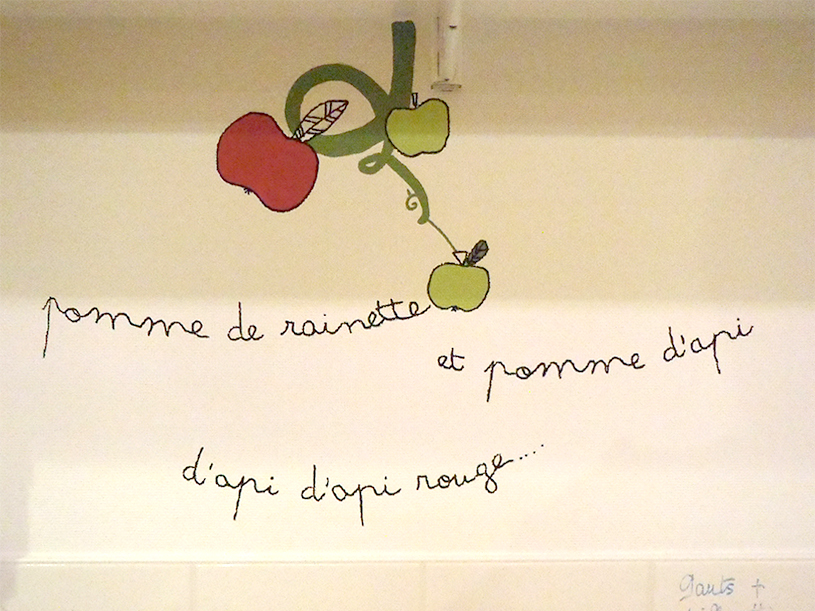 pomme de rainette
et pomme d'api
d'api d'api rouge....
Gants +